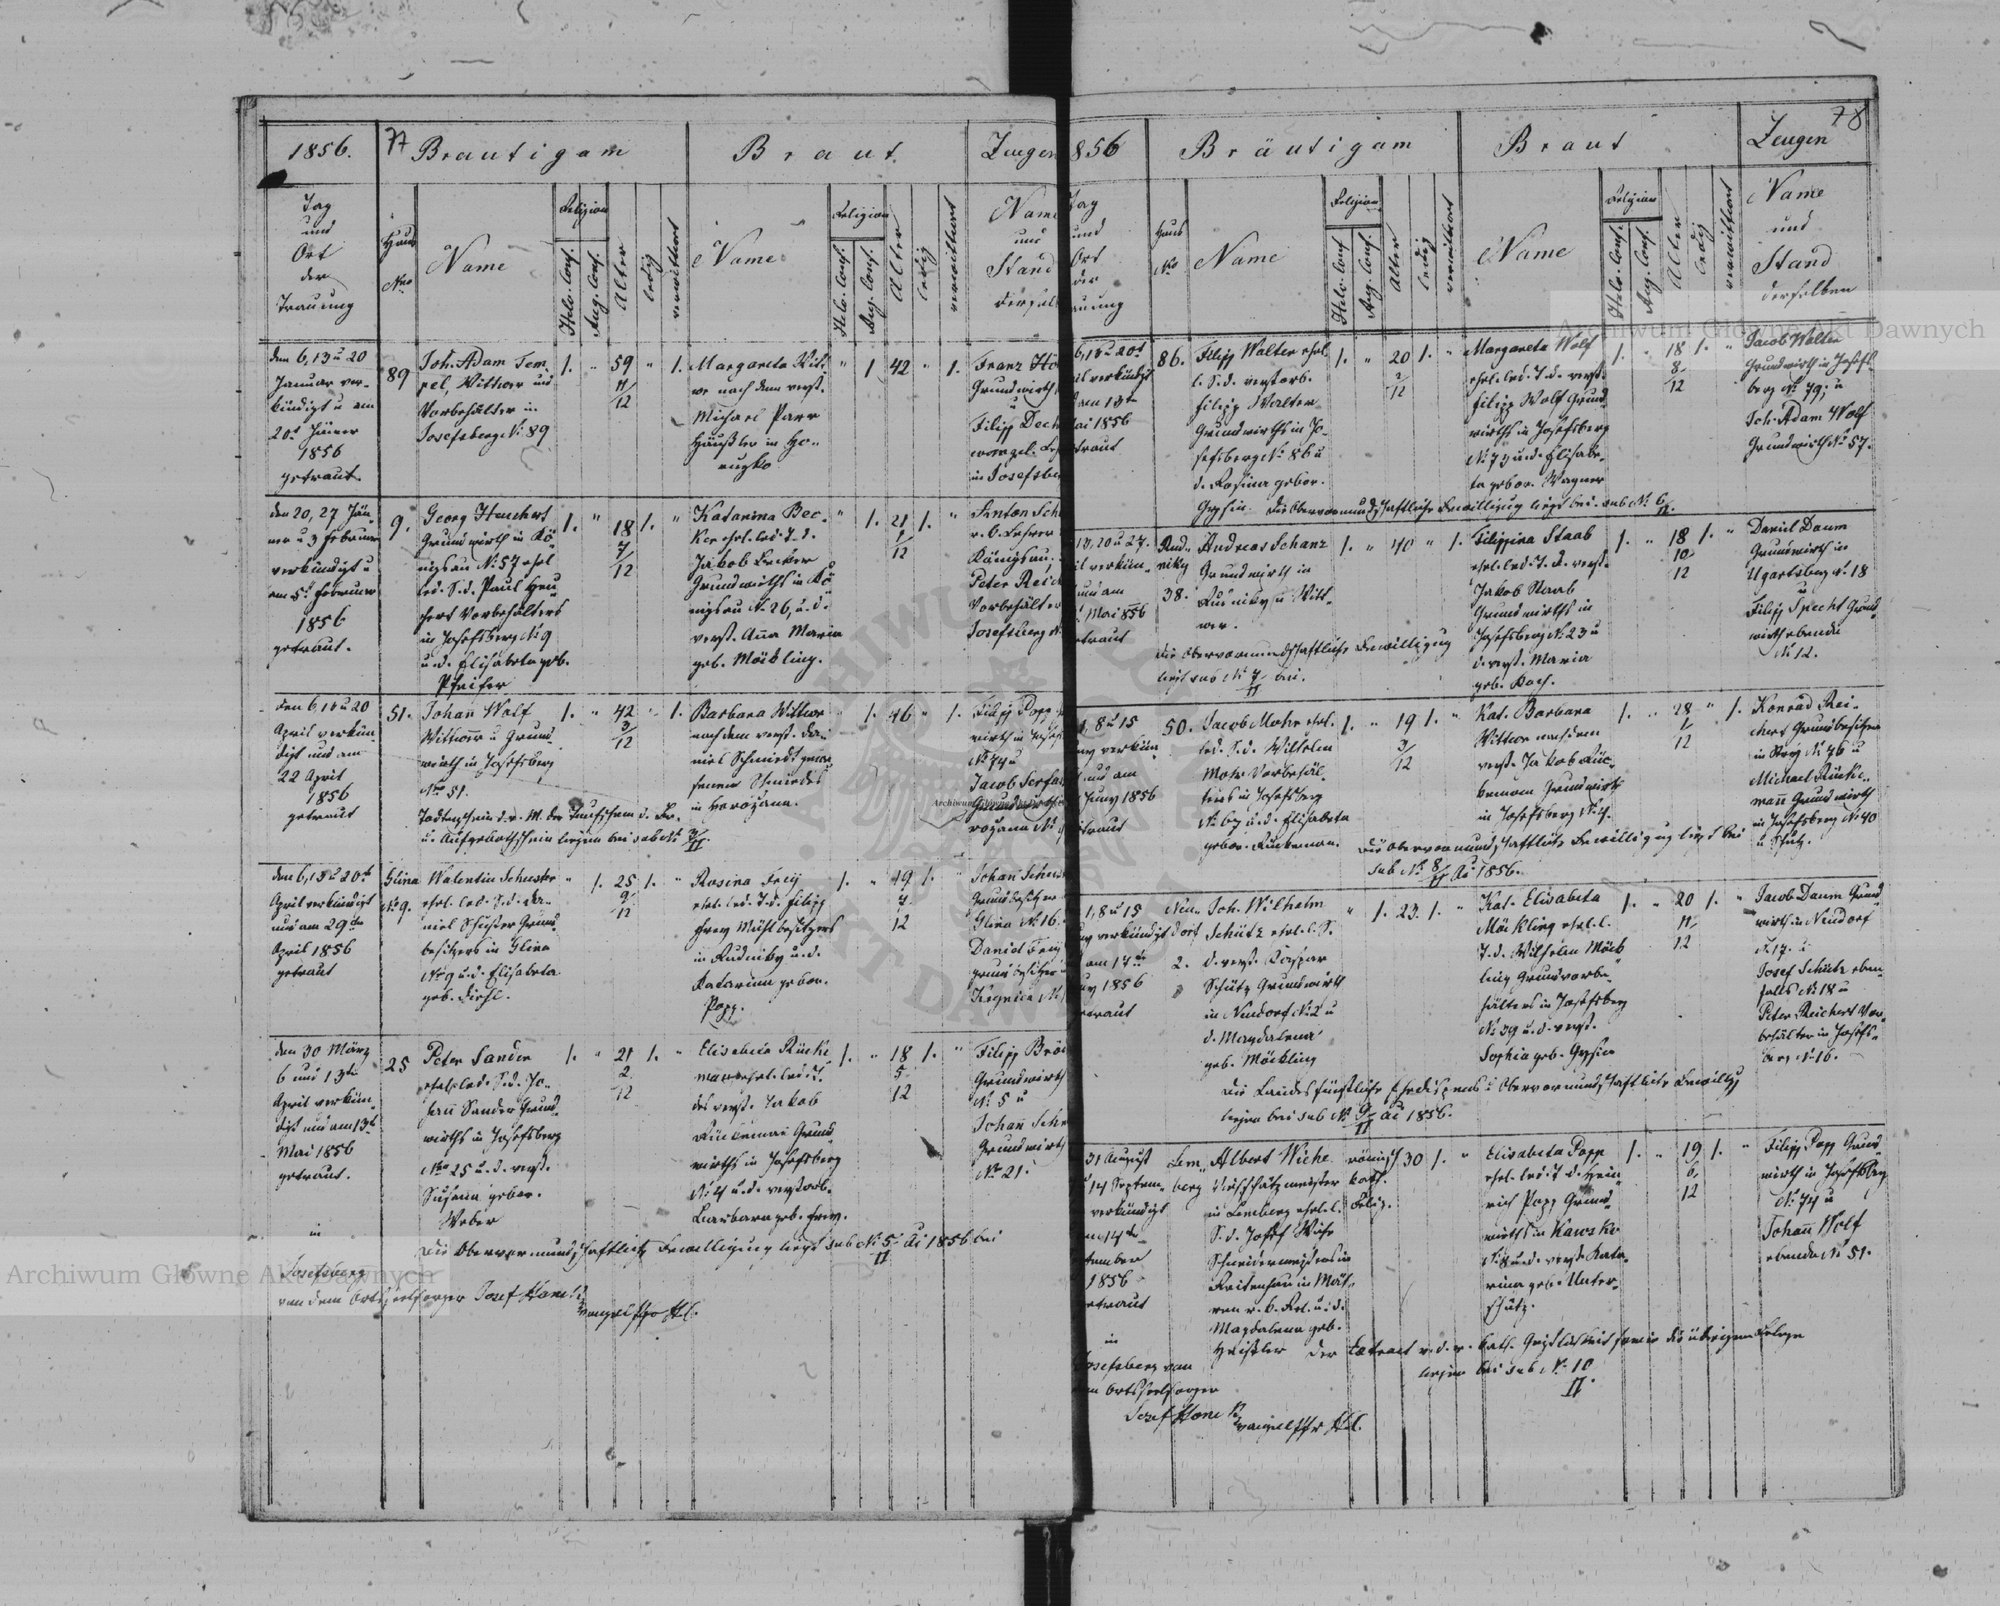 1856.
77
Bräutigam
Braut
Zeugen
Tag
und
Ort
der
Trauung
Haus
Nro
Name
Religion
Helv. Conf.
Aug. Conf.
Alter
ledig
verwittwet
Name
Religion
Helv. Conf.
Aug. Conf.
Alter
ledig
verwittwet
Name
und
Stand
den 6, 13 u 20
Januar ver-
kündigt u am
20t Jäner
1856
getraut.
89
Joh. Adam Tem
pel, Wittwer und
Vorbehälter in
Josefsberg No 89
1.
"
59
11/12
"
1.
Margareta Wit-
we nach dem verst.
Michael Parr
Häusler in Ho-
rugko
"
1
42
"
1.
Franz
Grundwirth
u
Filipp
in Josefsb
den 20, 27 Jän-
ner u 3 Februar
verkündigt u
am 5t Februar
1856
getraut.
9.
Georg Heuchert
Grundwirth in Kö-
nigsau No 57 ehel
led. S. d. Paul Heu
cherts Vorbehälters
in Josefsberg No 9
u. d. Elisabeta geb.
Pfeifer
1.
"
18
7/12
1.
"
Katarina Bec-
ker ehel. led. T. d.
Jakob Becker
Grundwirths in Kö
nigsau No 26, u. d.
verst. Anna Maria
geb. Möckling.
"
1.
21
1/12
1.
"
Anton Sch
Königsau.
Peter Reich
Vorbehälter
Josefsberg
den 6, 13 u 20
April verkün
digt und am
22 April
1856
getraut
51.
Johann Wolf
Wittwer u Grund-
wirth in Josefsberg
Nro 51.
1.
"
42
3/12
"
1.
Barbara Wittwe
nach dem verst. Da-
niel Schmiedt gewe
senen Schmiedes
in Horozana.
"
1.
46
"
1.
Filipp Popp
wirth in Josef
No 74 u
Jacob
Grundwirth
rozana No
Todtenschein d. v. M. der Taufschein d. Br.
u. Aufgebothsschein liegen bei sub No 4/II.
den 6, 13 u 20t
April verkündigt
und am 29ten
April 1856
getraut
Glina
No 9.
Walentin Schuster
ehel. led. S. d. Da-
niel Schuster Grund
besitzers in Glina
No 9 u. d. Elisabeta
geb. Diehl.
"
1.
25
9/12
1.
"
Rosina Frey
ehel. led. T. d. Filipp
Frey Mühlbesitzers
in Rudniky u. d.
Katarina gebor.
Popp.
1.
"
19
7/12
1.
"
Johann Schus
Grundbesitzer
Glina No 16.
Daniel Frey
Grundbesitzer
den 30 März
6 und 13t
April verkün-
digt und am 13t
Mai 1856
getraut.
25
Peter Sander
ehel. led. S. d. Jo-
hann Sander Grund
wirths in Josefsberg
Nro 25 u. d. verst.
Susana gebor.
Weber
1.
"
21
2/12
1.
"
Elisabeta Rücke
mann ehel. led. T.
des verst. Jakob
Rückeman Grund-
wirths in Josefsberg
No 4 u. d. verstorb.
Barbara geb. Frey.
1.
"
18
5/12
1.
"
Filipp
Grundwirth
No 5 u
Johann Sch
Grundwirth
No 21.
Die Obervormundschaftliche Bewilligung liegt sub No 5/II ai 1856 bei
in
Josefsberg
von dem Ortsseelsorger Josef
856
78
Bräutigam
Braut
Zeugen
Tag
und
Ort
der
auung
Haus
No
Name
Religion
Helv. Conf
Aug. Conf.
Alter
ledig
verwittwet
Name
Religion
Helv. Conf.
Aug. Conf.
Alter
ledig
verwittwet
Name
und
Stand
derselben
6, 13 u 20t
il verkündigt
am 13t
ai 1856
traut
86.
Filipp Walter ehel.
l. S. d. verstorb.
Filipp Walter
Grundwirths in Jo-
sefsberg No 86 u
d. Rosina gebor.
Gysin
1.
"
20
2/12
1.
"
Margareta Wolf
ehel. led. T. d. verst.
Filipp Wolf Grund-
wirths in Josefsberg
No 73 u. d. Elisabe-
ta gebor. Wagner
1.
"
18
8/12
1.
"
Jacob Walter
Grundwirth in Josefs-
berg No 79; u
Joh. Adam Wolf
Grundwirth No 57.
Die Obervormundschaftliche Bewilligung liegt bei sub No 6/II.
13, 20 u 27.
il verkün-
und am
Mai 856
traut
Rud-
niky
38.
Andreas Schanz
Grundwirth in
Rudniky u Witt-
wer.
1.
"
40
"
1.
Filippina Staab
ehel. led. T. d. verst.
Jakob Staab
Grundwirths in
Josefsberg No 23 u
d. verst. Maria
geb. Koch.
1.
"
18
10/12
1.
"
Daniel Daum
Grundwirth in
Ugartsberg No 18
u
Filipp Specht Grund
wirth ebenda
No 12.
Die Obervormundschaftliche Bewilligung
liegt sub No 7/II bei.
1, 8 u 15
ny verkün
und am
Juny 1856
traut
50.
Jacob Mohr ehel.
led. S. d. Wilhelm
Mohr Vorbehäl-
ters in Josefsberg
No 67 u. d. Elisabeta
gebor. Rückeman.
1.
"
19
3/12
1.
"
Kat. Barbara
Wittwe nach dem
verst. Jakob Rüc-
keman Grundwirth
in Josefsberg No 4.
1.
"
28
1/12
"
1.
Konrad Rei-
chert Grundbesitzer
in Stryj No 46 u
Michael Rücke-
mann Grundwirth
in Josefsberg No 40
Die Obervormundschaftliche Bewilligung liegt bei
sub No 8/II ai 1856.
1, 8 u 15
ny verkündigt
am 17t
ny 1856
traut
Neu-
dorf
2.
Joh. Wilhelm
Schütz ehel. l. S.
d. verst. Kaspar
Schütz Grundwirth
in Neudorf No 2 u
d. Magdalena
geb. Möckling
"
1.
23.
1.
"
Kat. Elisabeta
Möckling ehel. l.
T. d. Wilhelm Möck
ling Grundvorbe-
hälters in Josefsberg
No 39 u. d. verst.
Sophia geb. Gysin
1.
"
20
11/12
1.
"
Jacob Daum Grund
wirth in Neudorf
No 17. u
Josef Schütz eben-
falls No 18 u
Peter Reichert Vor-
behälter in Josefs-
berg No 16.
Die Landesfürstliche Ehedispens u Obervormundschaftliche Bewillg
liegen bei sub No 9/II ai 1856.
31 August
14 Septem-
verkündigt
m 14t
tember
1856
etraut
Lem-
berg
Albert Wiche
in Lemberg ehel. l.
S. d. Josef Wiche
Schneidermeisters in
Magdalena geb.
römisch
kath.
Relig.
30
1.
"
Elisabeta Popp
ehel. led. T. d. Hein-
rich Popp Grund-
wirth in Hanzko
No 8 u. d. verst. Kata
rina geb. Unter-
schütz.
1.
"
19
6/12
1.
"
Filipp Popp Grund-
wirth in Josefsberg
No 74 u
Johann Wolf
ebenda No 51.
liegen bei sub No 10/II.
in
Josefsberg von
Ortsseelsorger
Josef
Archiwum Główne Akt Dawnych
Archiwum Główne Akt Dawnych